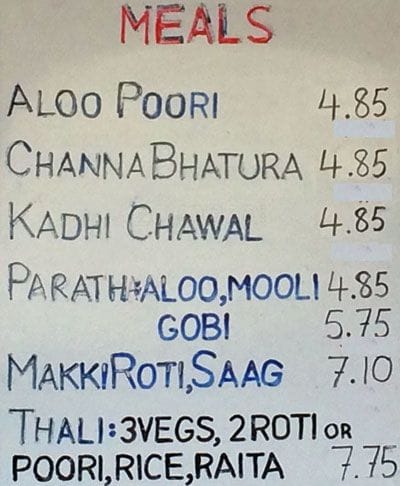 MEALS
ALOO POORI 4.85
CHANNA BHATURA 4.85
KADHI CHAWAL 4.85
PARATH:ALOO,MOOLI 4.85
GOBI 5.75
MAKKI ROTI,SAAG 7.10
THALI:3VEGS, 2ROTI OR
POORI,RICE,RAITA 7.75